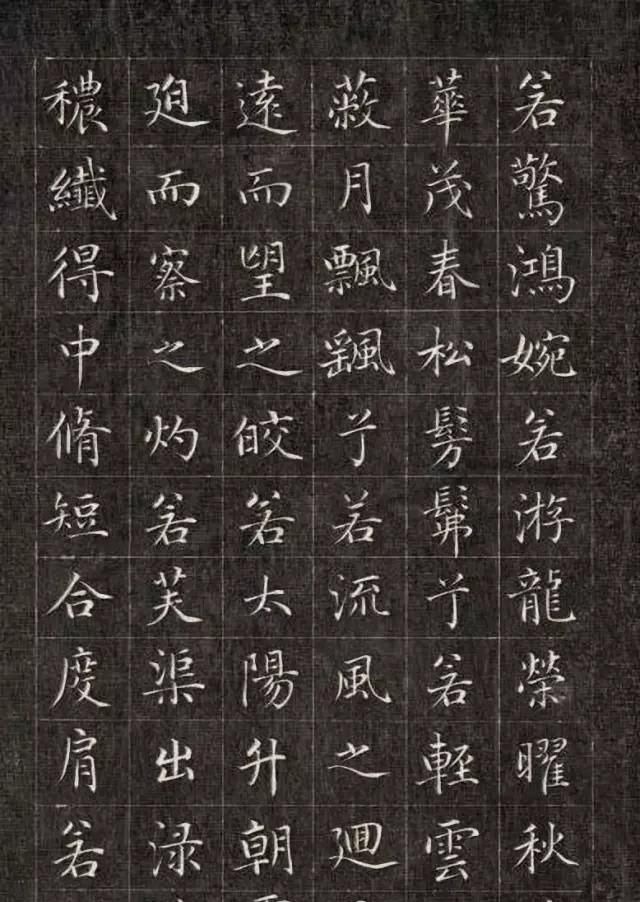 若驚鴻婉若游龍榮曜秋
華茂春松髣髴兮若輕雲
蔽月飄颻兮若流風之迴
遠而望之皎若太陽升朝
迫而察之灼若芙渠出淥
穠纖得中脩短合度肩若